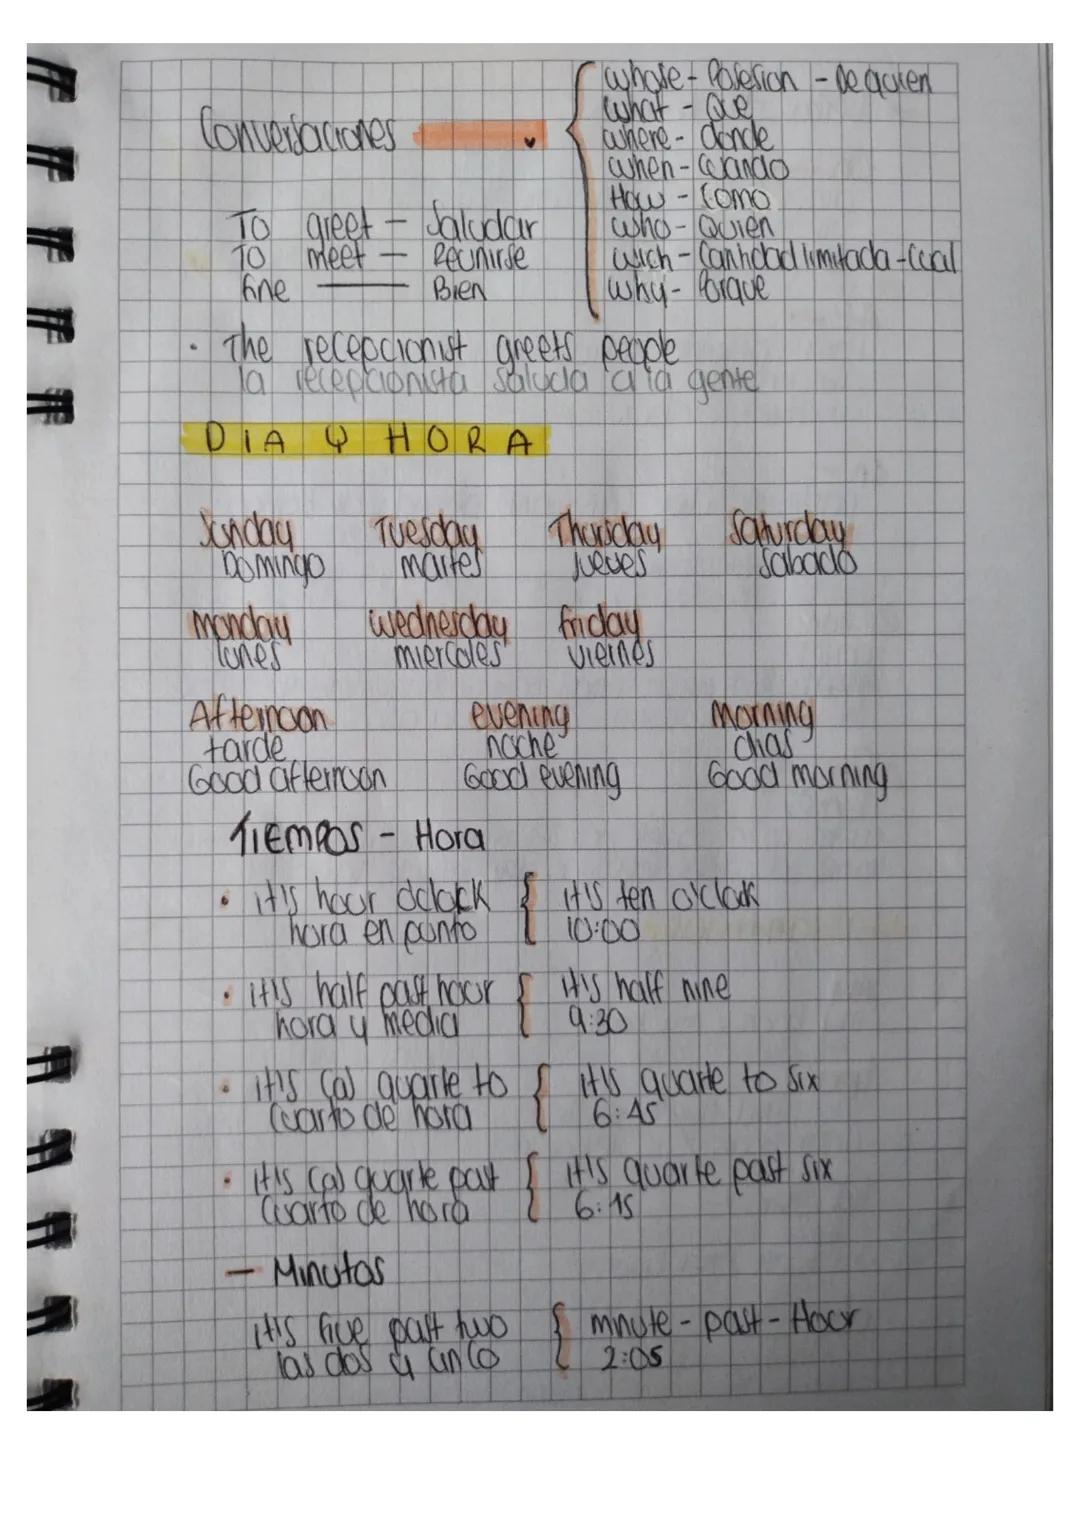 Conversaciones
whose - Posesion - De quien
what - Que
where - donde
when - Cuando
How - Como
who - Quien
wich - Cantidad limitada - Cual
why - Porque
To greet - Saludar
To meet - Reunirse
fine - Bien
• The recepcionist greets people
la recepcionista saluda a la gente
DIA Y HORA
Sunday Tuesday Thursday Saturday
Domingo martes jueves sabado
Monday Wednesday friday
lunes miercoles viernes
Afternoon evening Morning
tarde noche dias
Good afternoon Good evening Good morning
TIEMPOS - Hora
• it's hour o'clock { it's ten o'clock
hora en punto 10:00
• it's half past hour { it's half nine
hora y media 9:30
• it's (a) quarte to { it's quarte to six
Cuarto de hora 6:45
• it's (a) quarte past { it's quarte past six
Cuarto de hora 6:15
- Minutos
it's five past two { minute - past - Hour
las dos y cinco 2:05